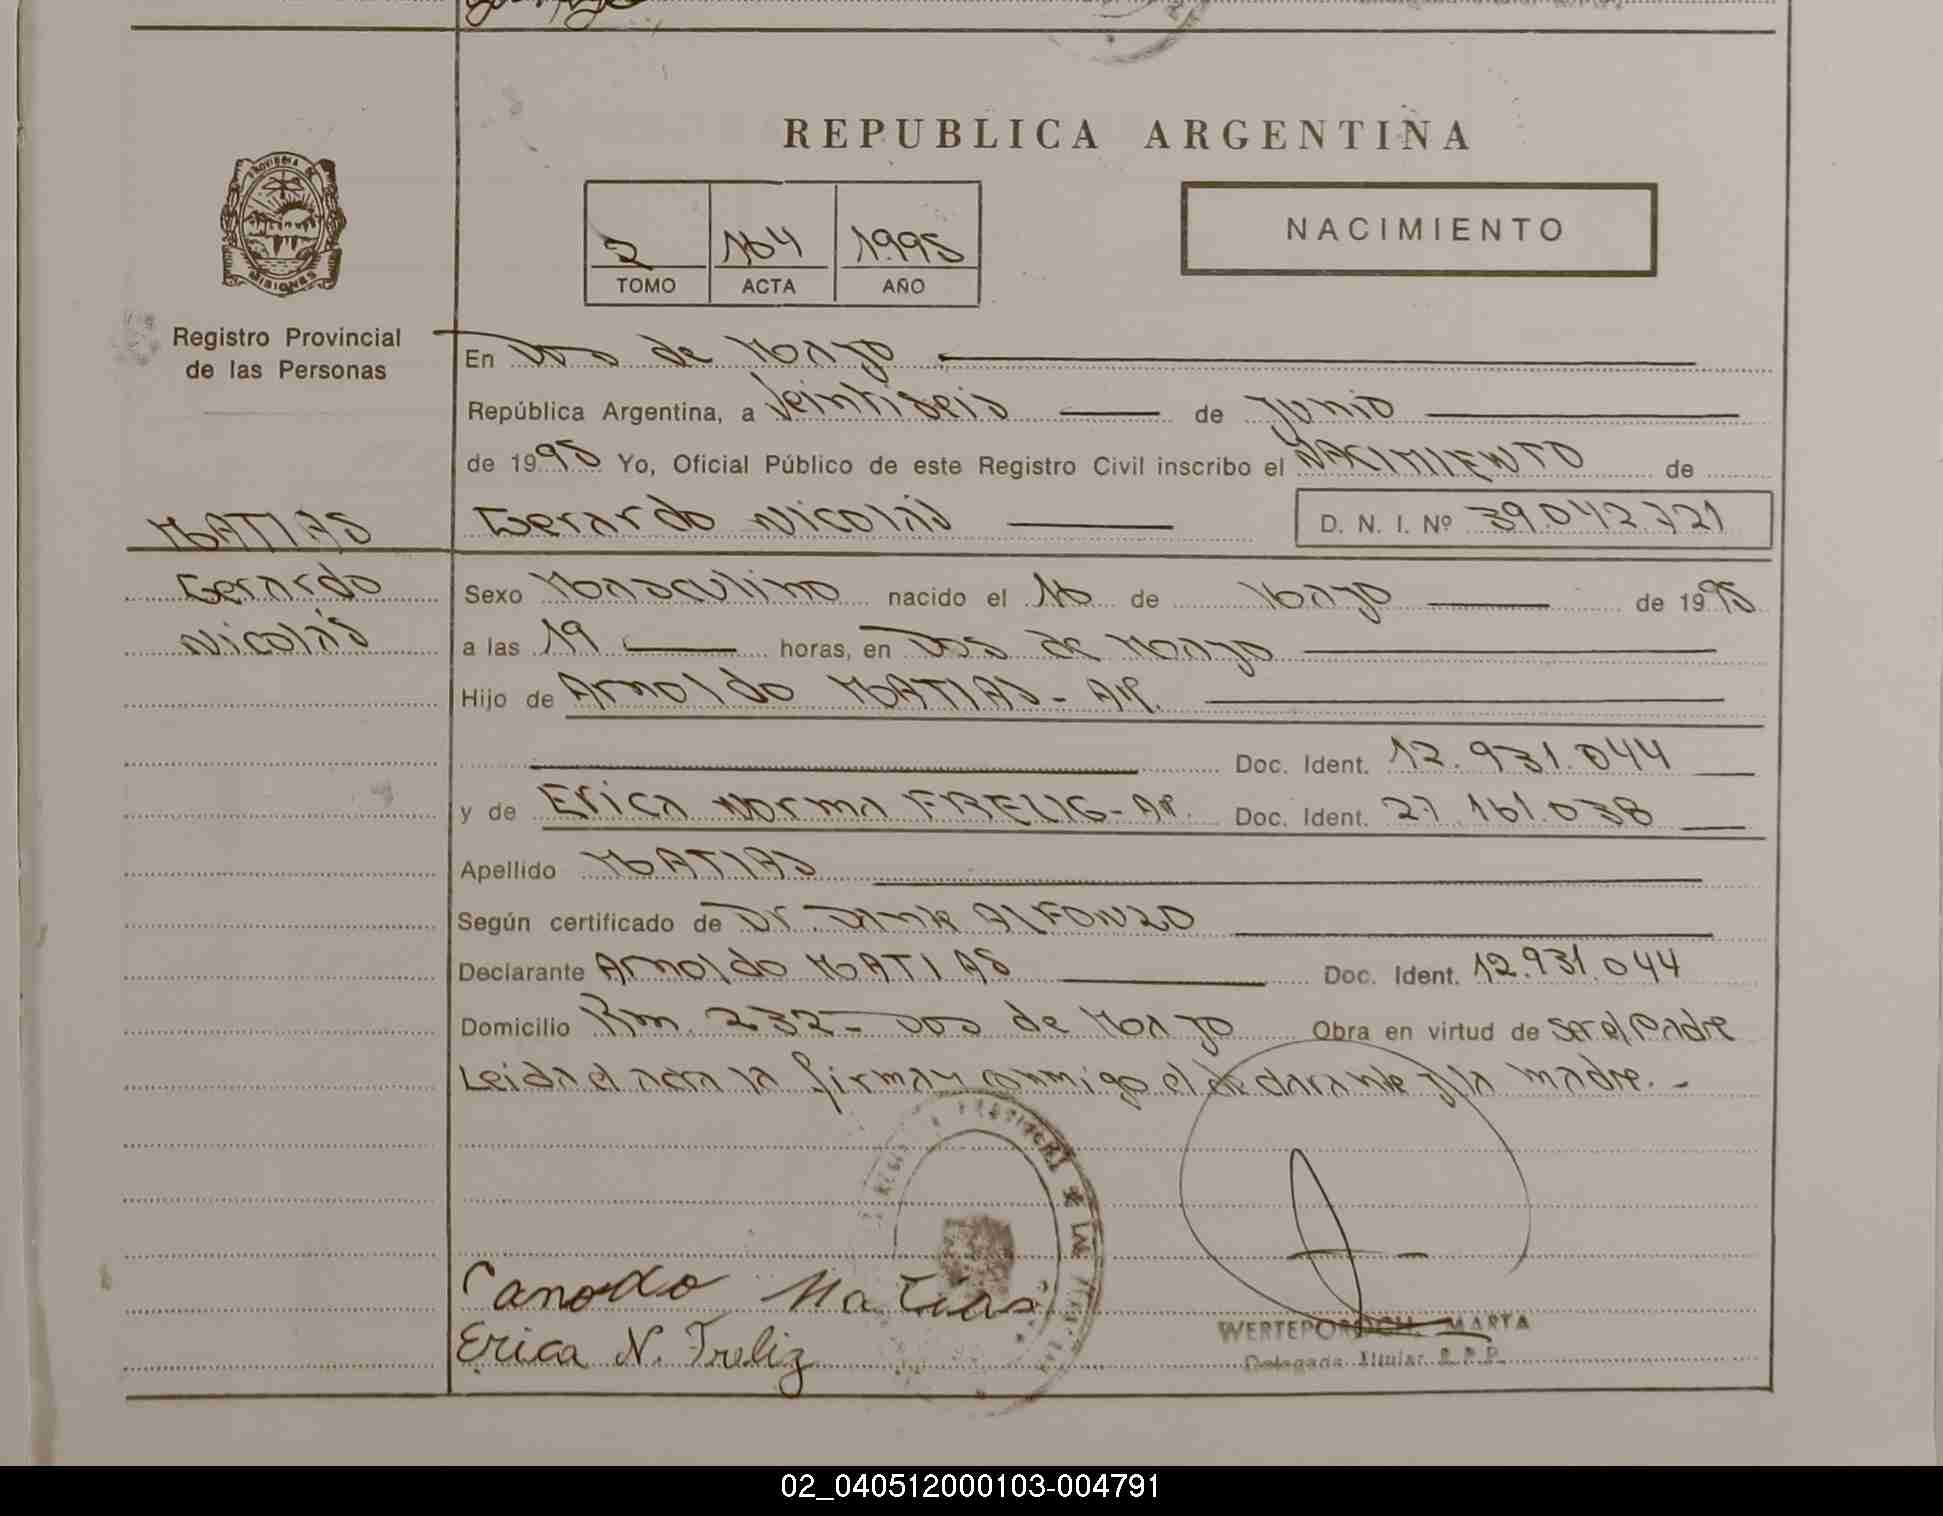 REPUBLICA ARGENTINA
PROVINCIA DE MISIONES
2 164 1995
TOMO ACTA AÑO
NACIMIENTO
Registro Provincial
de las Personas
En Dos de Mayo
República Argentina, a Veintiseis de Junio
de 1995 Yo, Oficial Público de este Registro Civil inscribo el NACIMIENTO de
MATIAS
Gerardo Nicolás D. N. I. Nº 39.042.721
Gerardo
Nicolás
Sexo Masculino nacido el 16 de Mayo de 1995
a las 19 horas, en Dos de Mayo
Hijo de Arnoldo MATIAS - AR.
Doc. Ident. 12.931.044
y de Erica Norma FRELIG - AR. Doc. Ident. 27.161.038
Apellido MATIAS
Según certificado de Dr. Dante ALFONZO
Declarante Arnoldo MATIAS Doc. Ident. 12.931.044
Domicilio Km 232 - Dos de Mayo Obra en virtud de ser el Padre
Leida el acta la firman conmigo el declarante y la madre. -
Matias
Erica N. Freliz
WERTEPOROCH, MARTA
Delegada Titular R.P.P.
02_040512000103-004791